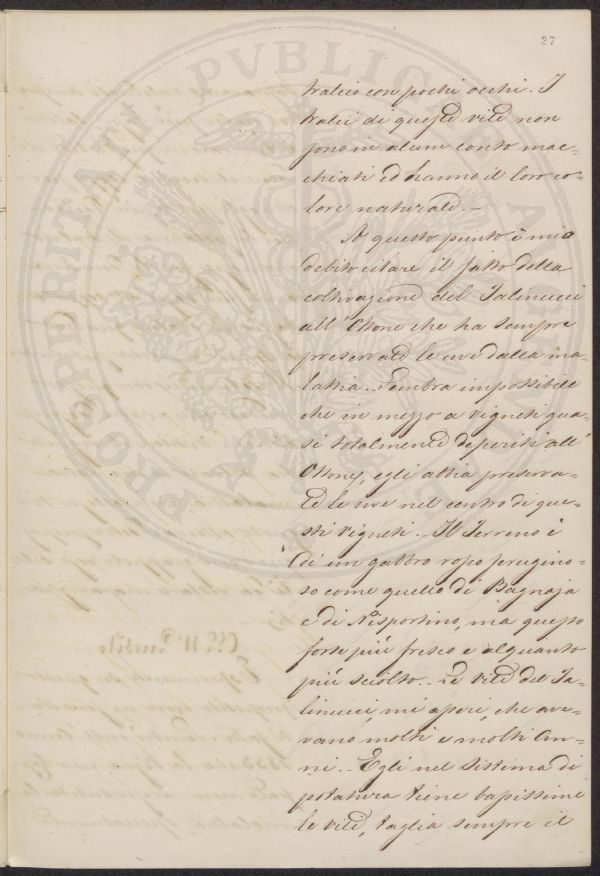 27
tralcio con pochi occhi. I
tralci di queste vite non
sono in alcun conto mac=
chiati ed hanno il loro co=
lore naturale.—
A questo punto è mio
debito citare il fatto della
coltivazione del Talinucci
all'Ottone che ha sempre
preservate le uve dalla ma=
lattia. Sembra impossibile
che in mezzo a vigneti qua=
si totalmente deperiti all'
Ottone, egli abbia preserva=
te le uve nel centro di que=
sti vigneti. Il Terreno è
di un gabbro rosso ferugino=
so come quello di Bagnaja
e di Nisportino, ma questo
forse più fresco e alquanto
più sciolto. Le vite del Ta=
linucci, mi asserì, che ave=
vano molti e molti An=
ni. Egli nel sistema di
potatura tiene bassissime
le vite, taglia sempre il
PROSPORITATI PVBLICAE